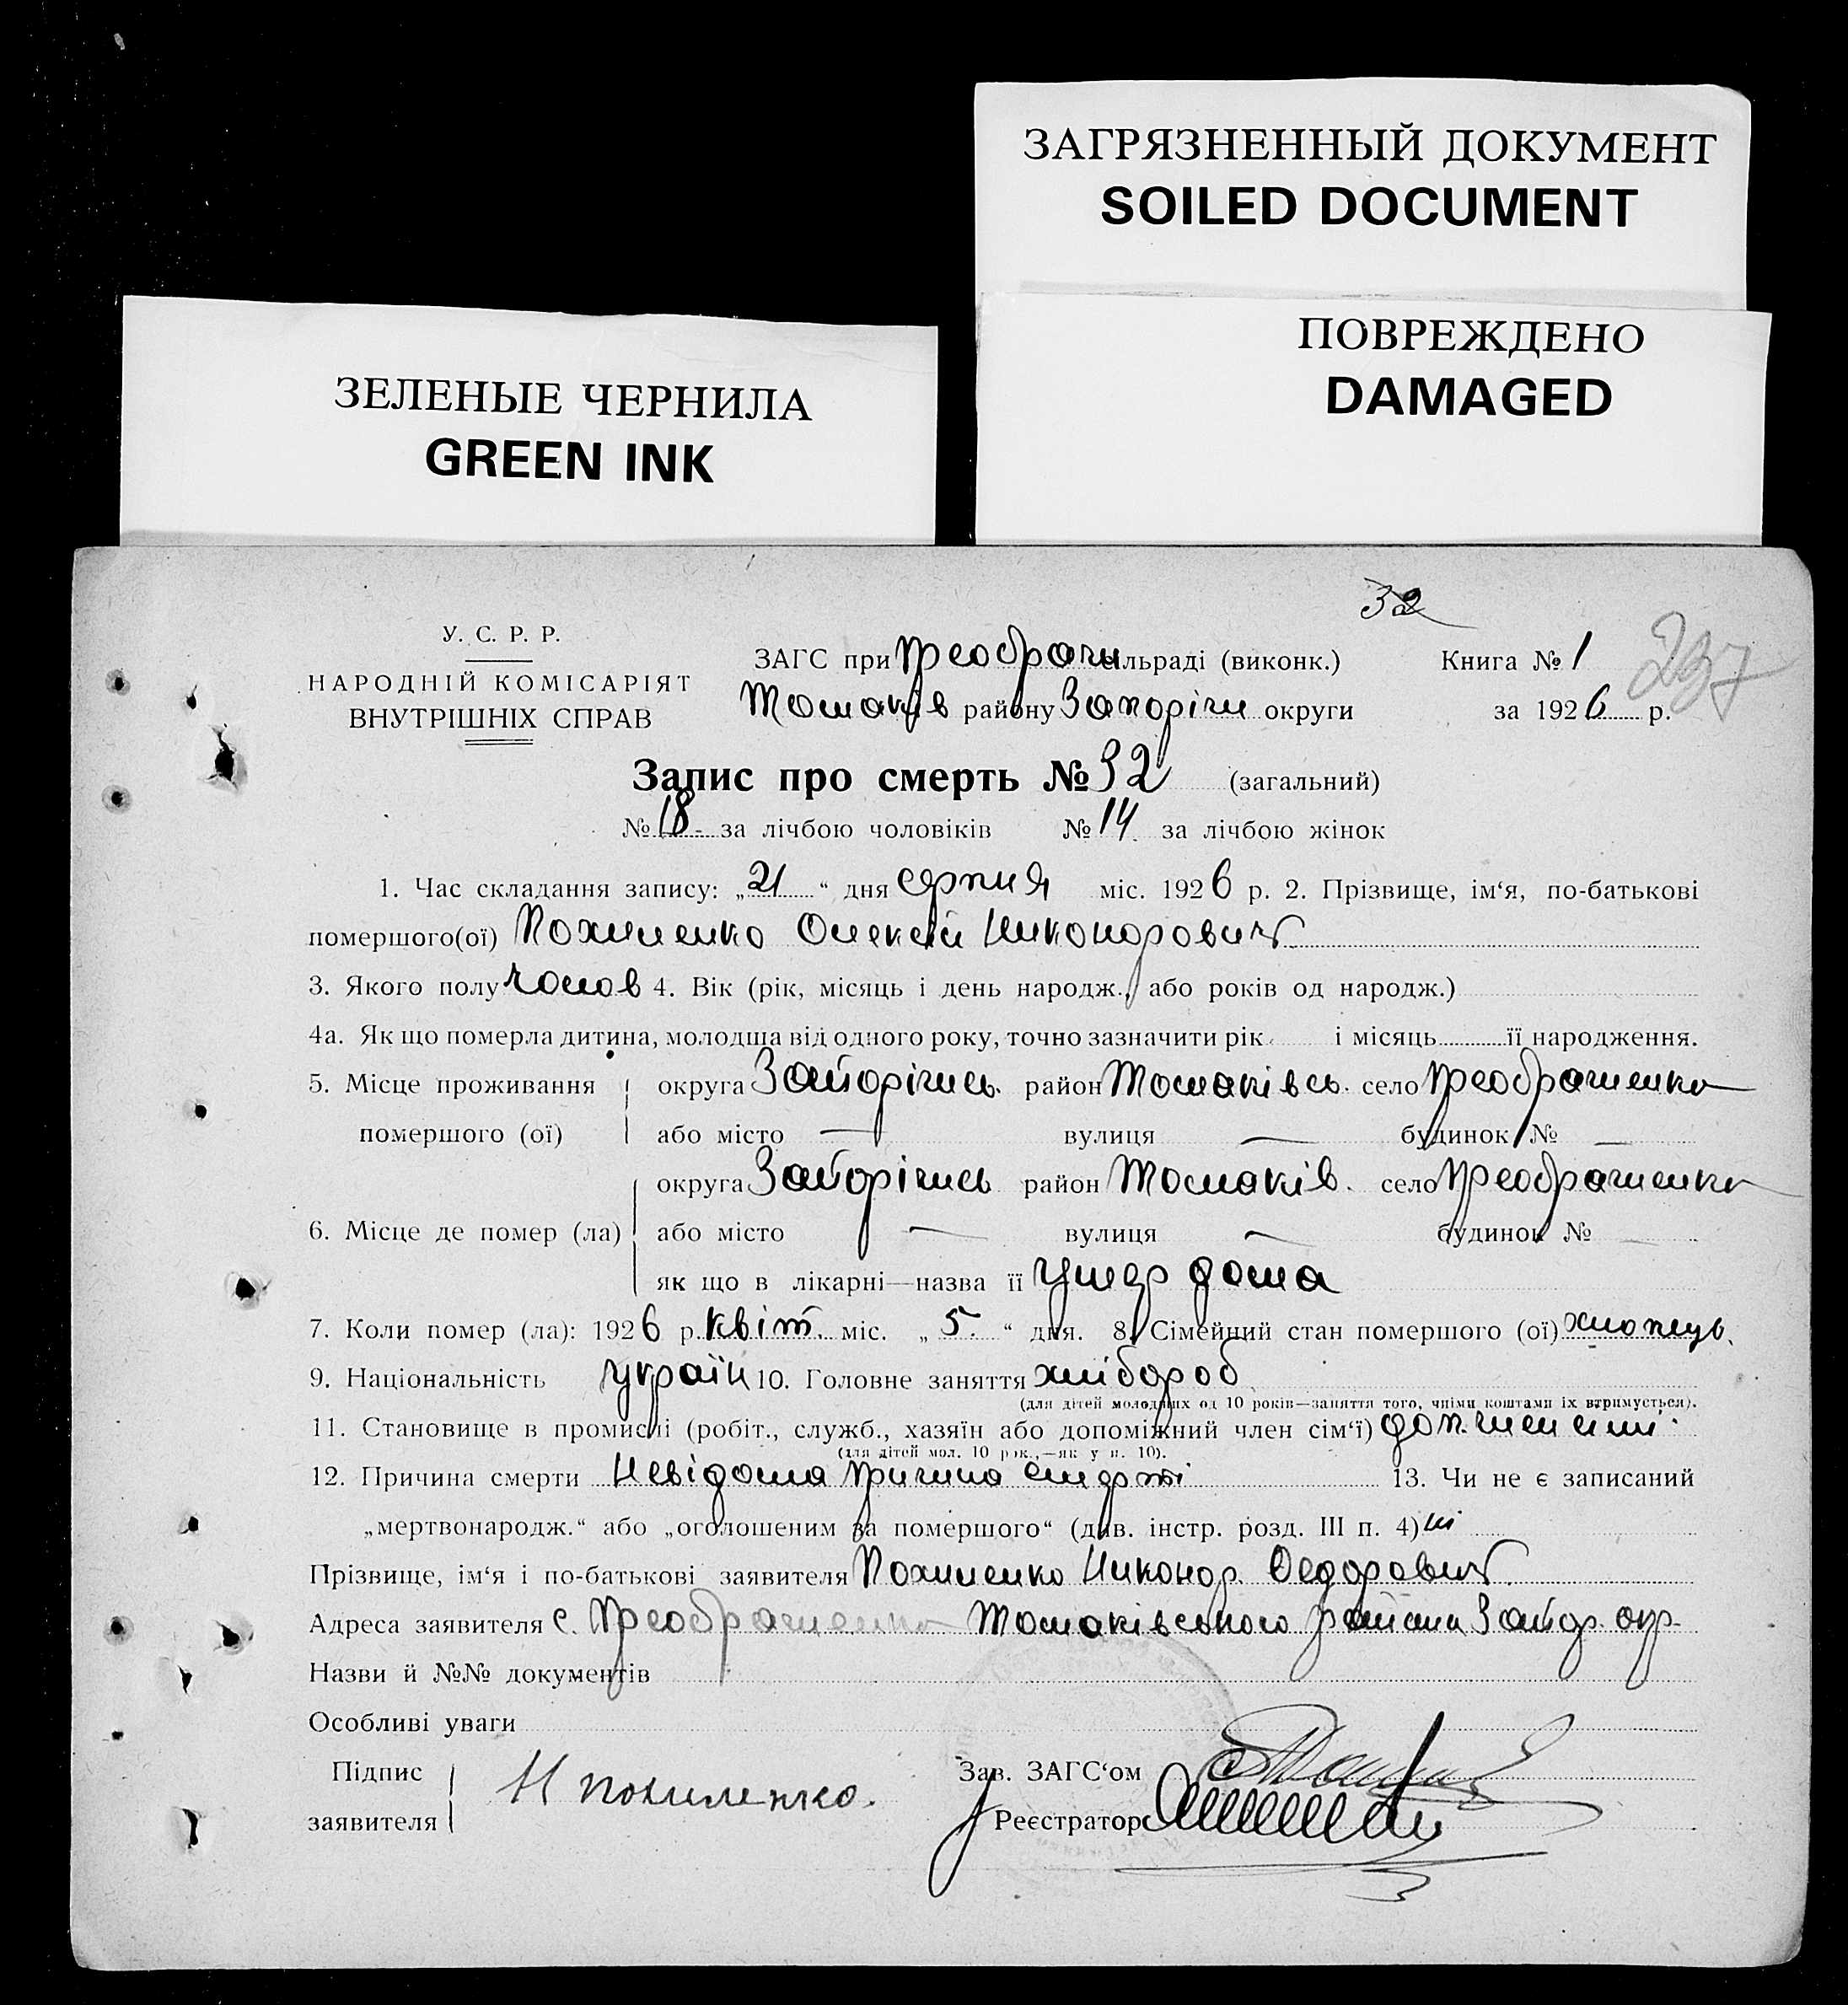 ЗАГРЯЗНЕННЫЙ ДОКУМЕНТ
SOILED DOCUMENT
ПОВРЕЖДЕНО
DAMAGED
ЗЕЛЕНЫЕ ЧЕРНИЛА
GREEN INK
32
237
У. С. Р. Р.
НАРОДНІЙ КОМІСАРІЯТ
ВНУТРІШНІХ СПРАВ
ЗАГС при Преображен сільраді (виконк.) Книга № 1
Томаків району Запоріжж округи за 1926 р.
Запис про смерть № 32 (загальний)
№ 18 за лічбою чоловіків № 14 за лічбою жінок
1. Час складання запису: „21“ дня серпня міс. 1926 р. 2. Прізвище, ім‘я, по-батькові
помершого(ої) Похиленко Олексій Никонорович
3. Якого полу чолов 4. Вік (рік, місяць і день народж., або років од народж.)
4а. Як що померла дитина, молодша від одного року, точно зазначити рік і місяць її народження.
5. Місце проживання помершого (ої) округа Запоріжсь. район Томаківсь. село Преображенка
або місто — вулиця — будинок № —
6. Місце де помер (ла) округа Запоріжсь район Томаків. село Преображенка
або місто — вулиця — будинок №
як що в лікарні—назва її умер дома
7. Коли помер (ла): 1926 р. квіт. міс. „5.“ дня. 8. Сімейний стан помершого (ої) хлопець.
9. Національність україн 10. Головне заняття хлібороб
(для дітей молодших од 10 років—заняття того, чиїми коштами їх втримується).
11. Становище в промислі (робіт., служб., хазяїн або допоміжний член сім‘ї) доп. член сім'ї
(для дітей мол. 10 рок.,—як у п. 10).
12. Причина смерти Невідома причина смерті 13. Чи не є записаний
„мертвонародж.“ або „оголошеним за помершого“ (див. інстр. розд. III п. 4) ні
Прізвище, ім‘я і по-батькові заявителя Похиленко Никонор Федорович
Адреса заявителя с. Преображенка Томаківського района Запор. окр.
Назви й №№ документів
Особливі уваги
Підпис заявителя Н Похиленко. Зав. ЗАГС‘ом
Реєстратор